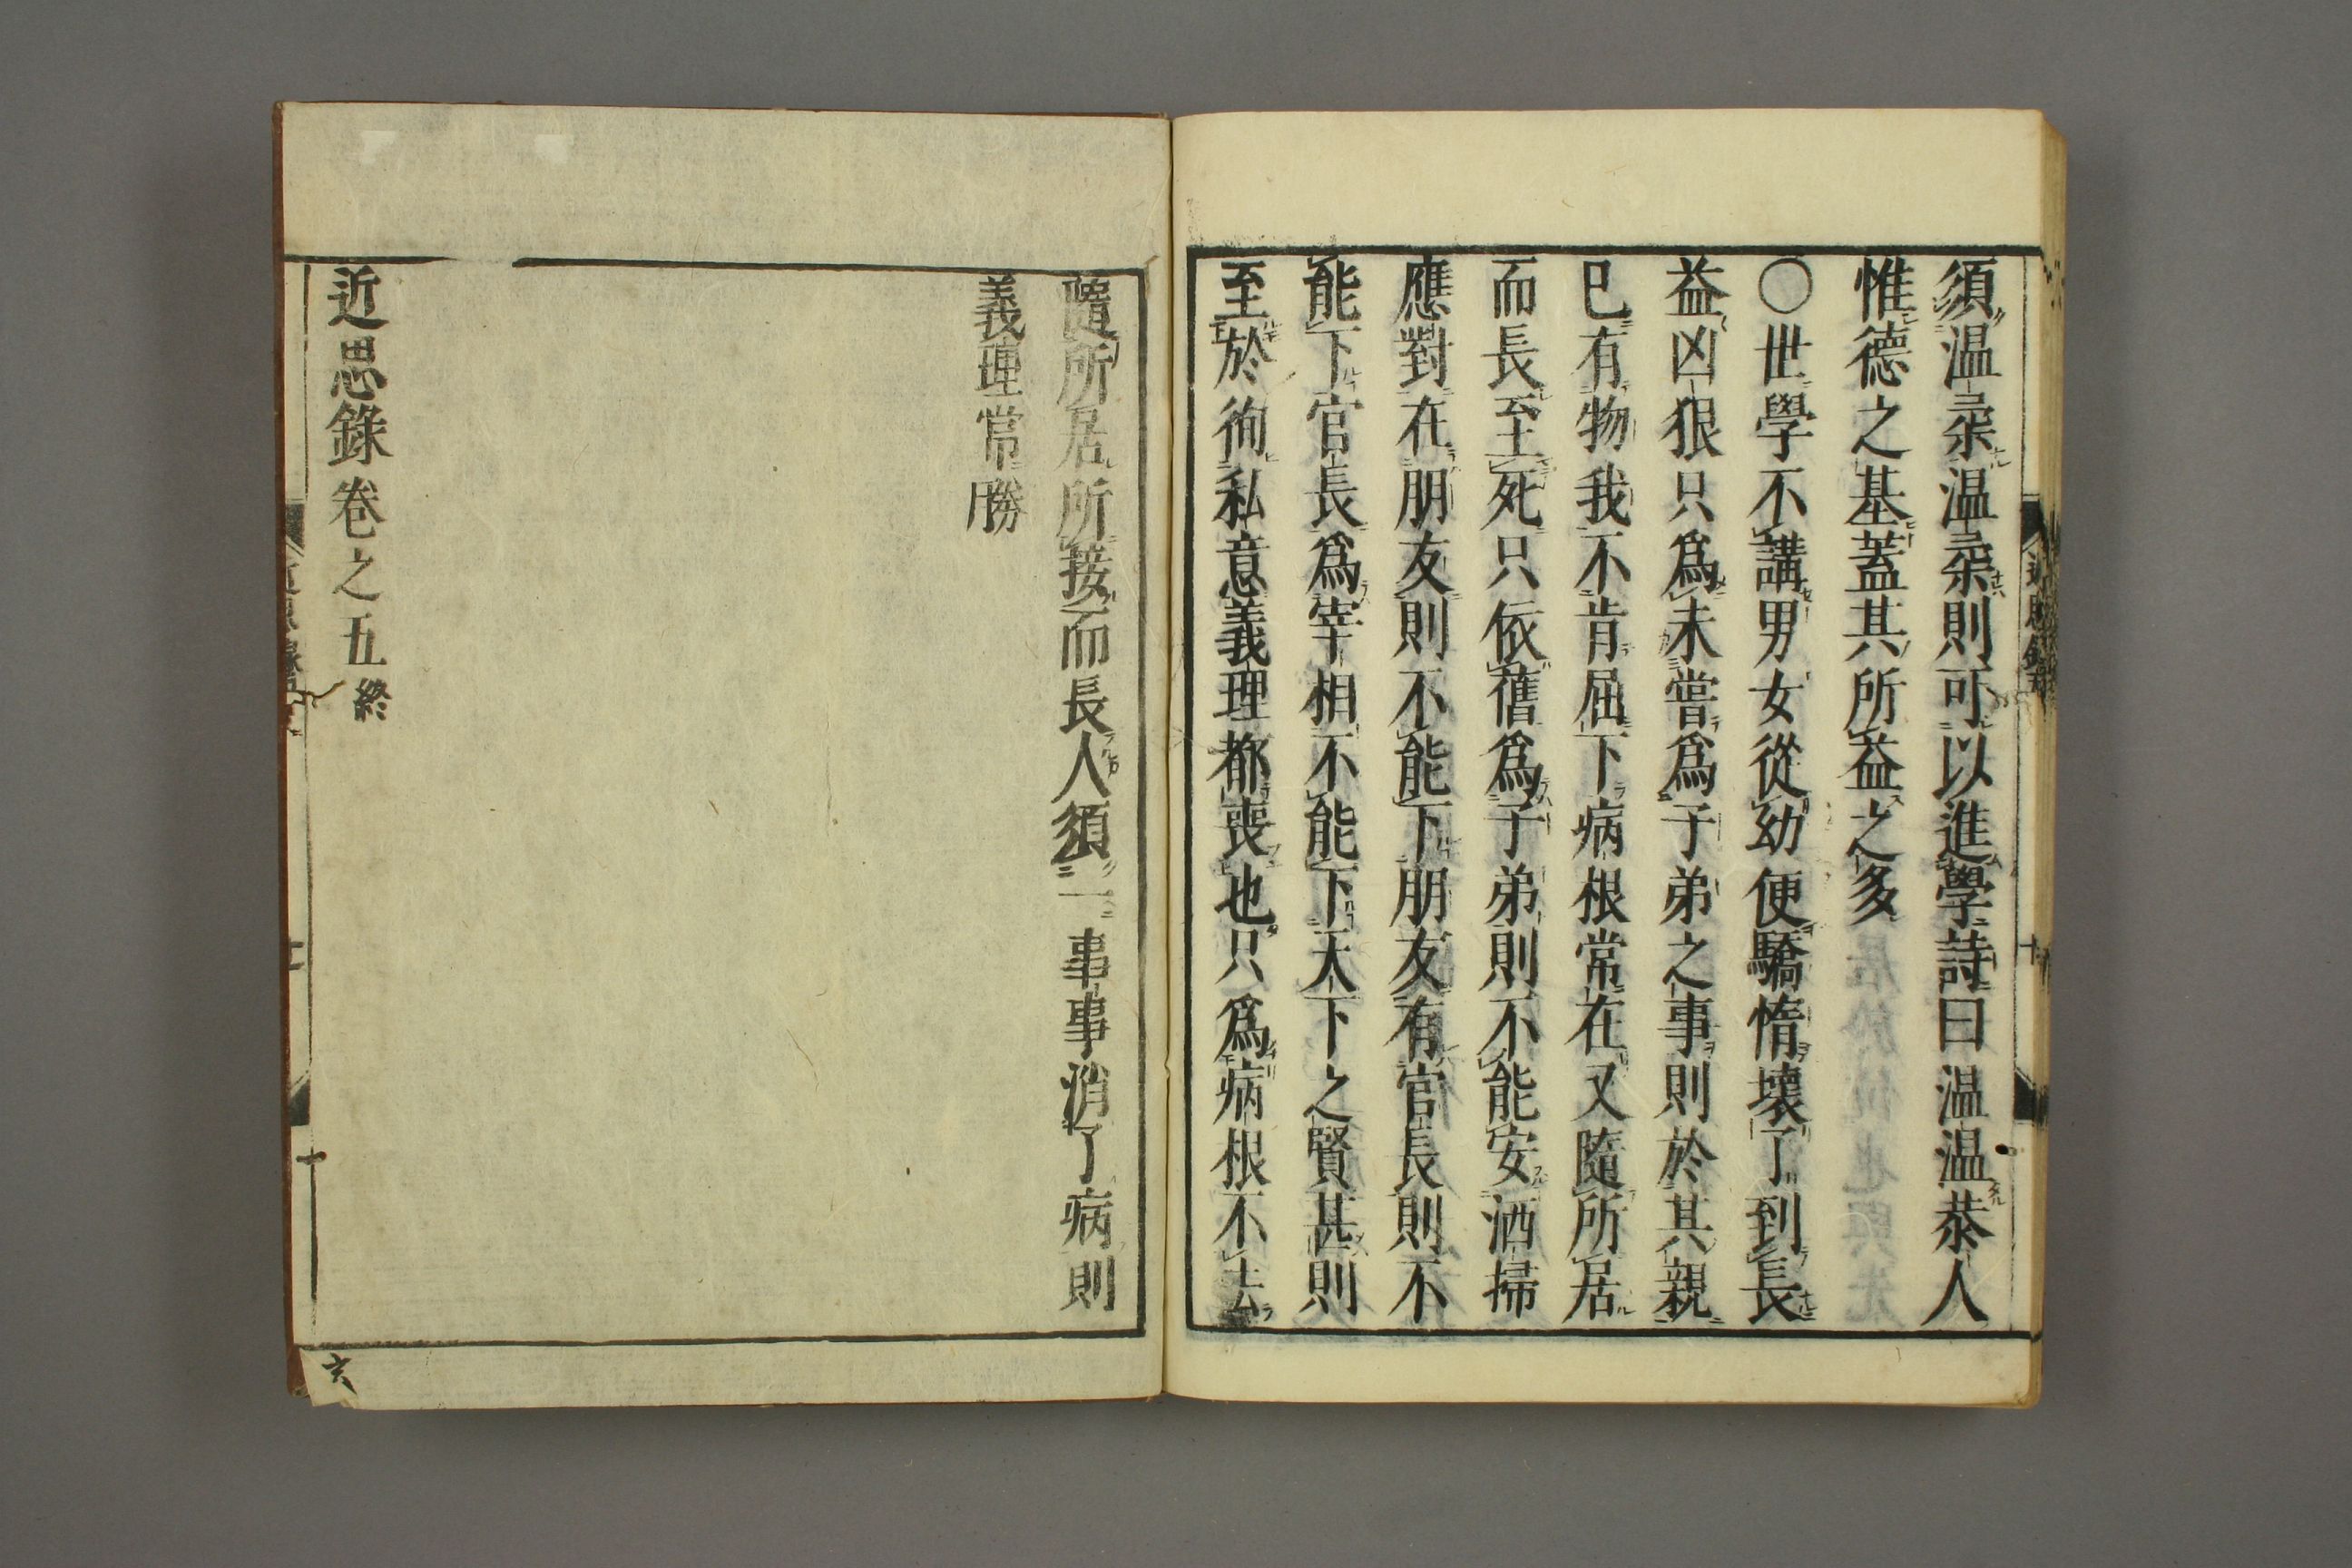 須温柔温柔則可以進學詩曰温温恭人
惟德之基蓋其所益之多
○世學不講男女從幼便驕惰壞了到長
益凶狠只爲未嘗爲子弟之事則於其親
已有物我不肯屈下病根常在又隨所居
而長至死只依舊爲子弟則不能安洒掃
應對在朋友則不能下朋友有官長則不
能下官長爲宰相不能下天下之賢甚則
至於徇私意義理都喪也只爲病根不去
隨所居所接而長人須一事事消了病則
義理常勝
近思錄卷之五終
六